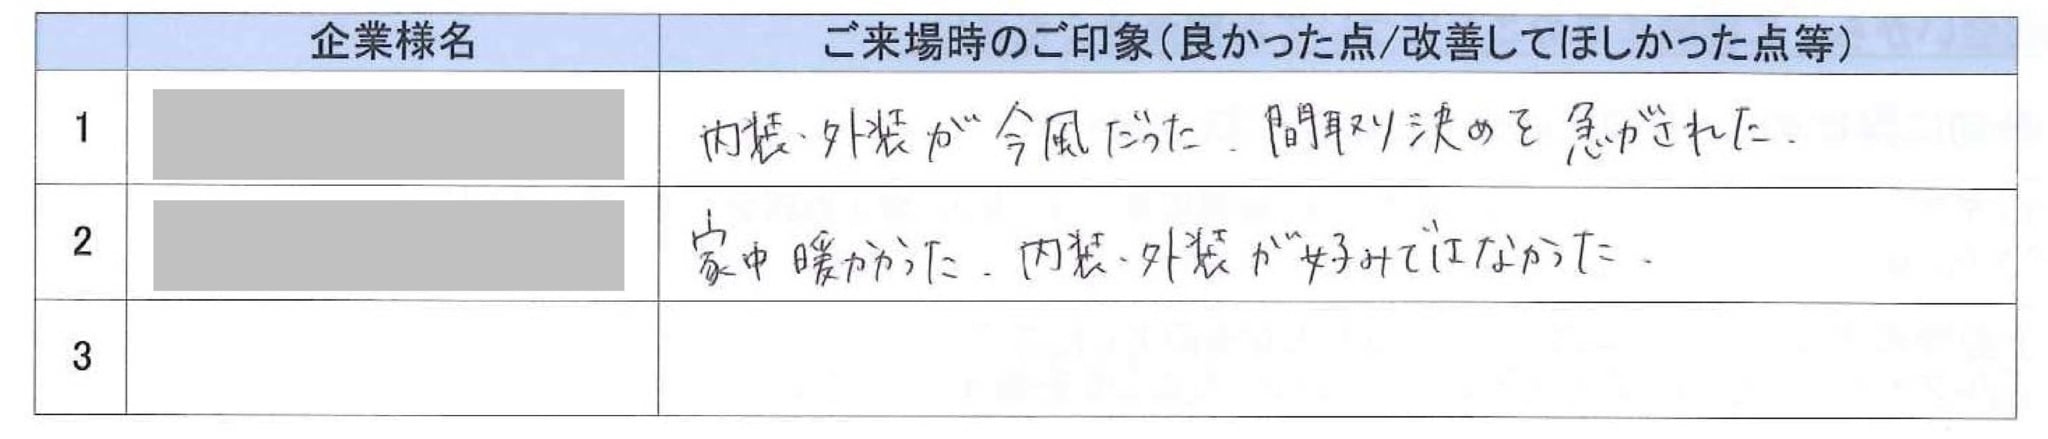 企業様名 ご来場時のご印象(良かった点/改善してほしかった点等)
1 内装・外装が今風だった. 間取り決めを急がされた.
2 家中暖かかった. 内装・外装が好みではなかった.
3